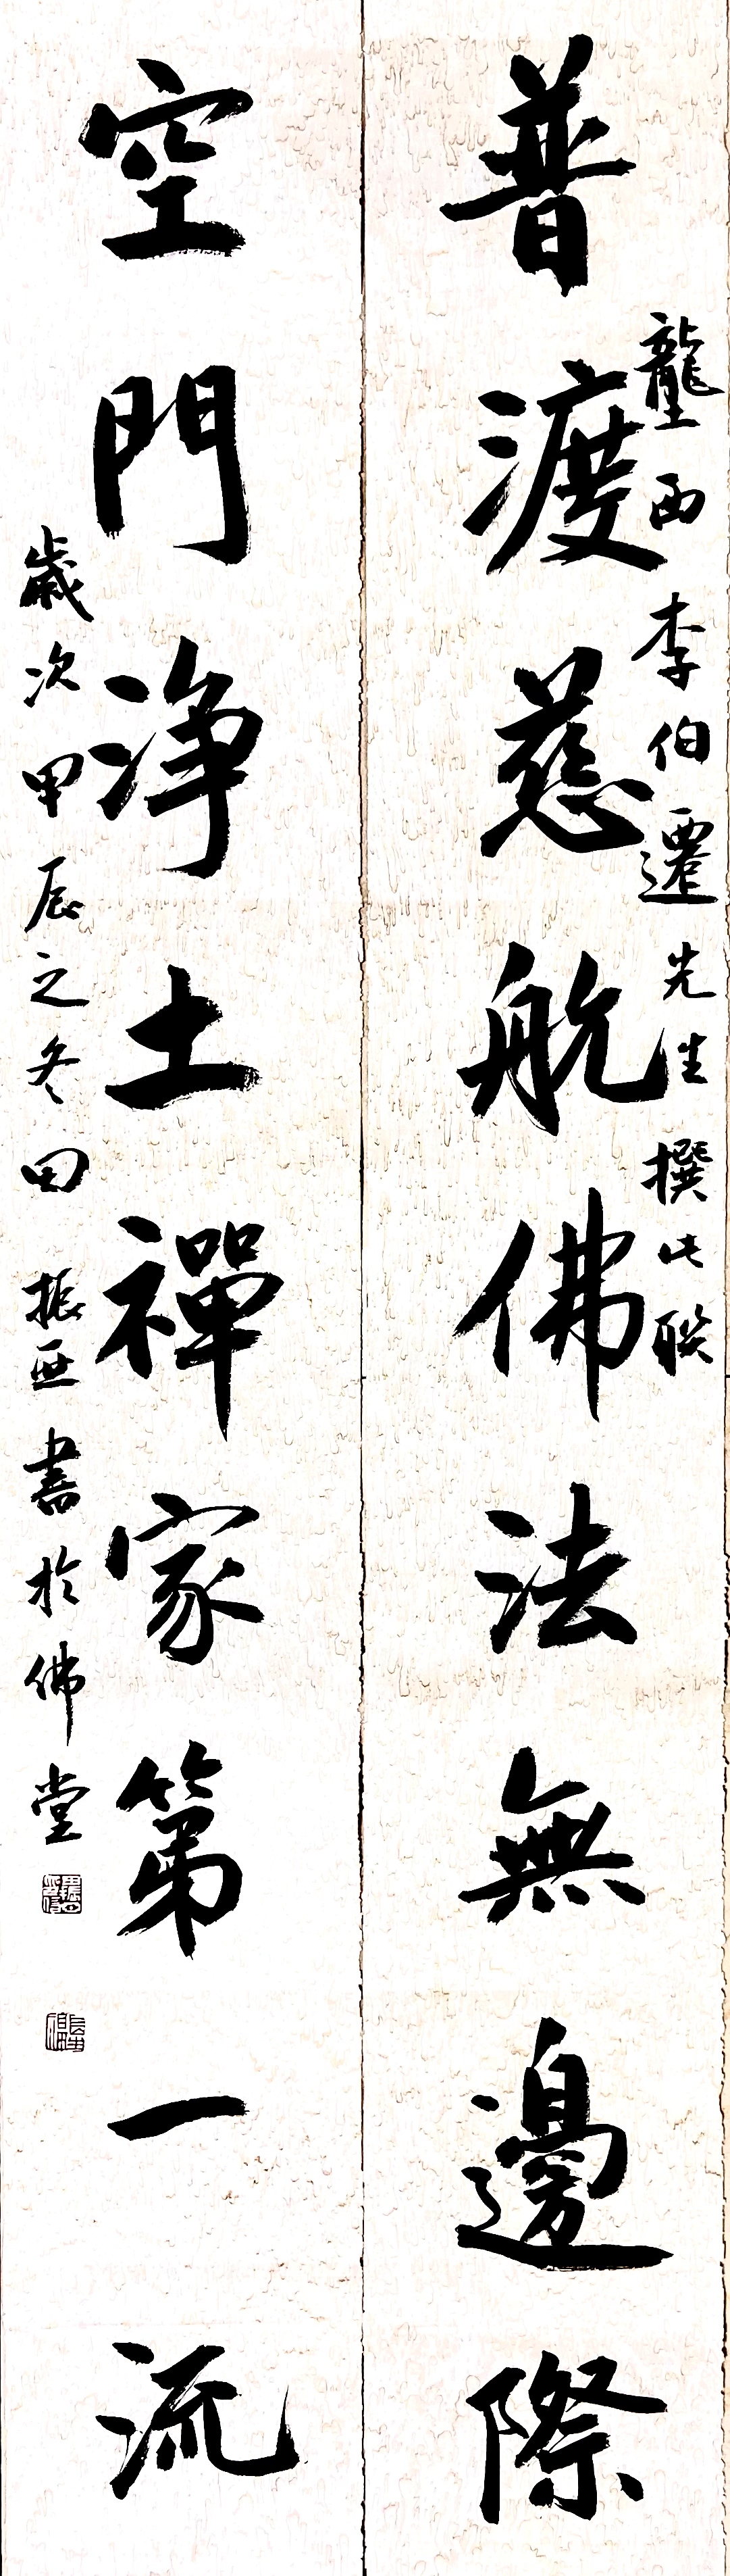 普渡慈航佛法無邊際
壠西李伯遷先生撰此联
空門净土禪家第一流
歲次甲辰之冬田振亜書於佛堂